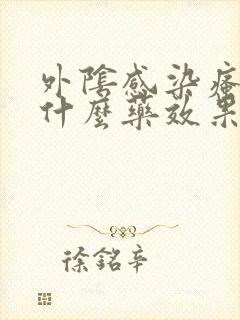 外陰感染瘙
什麼藥效果
徐銘辛